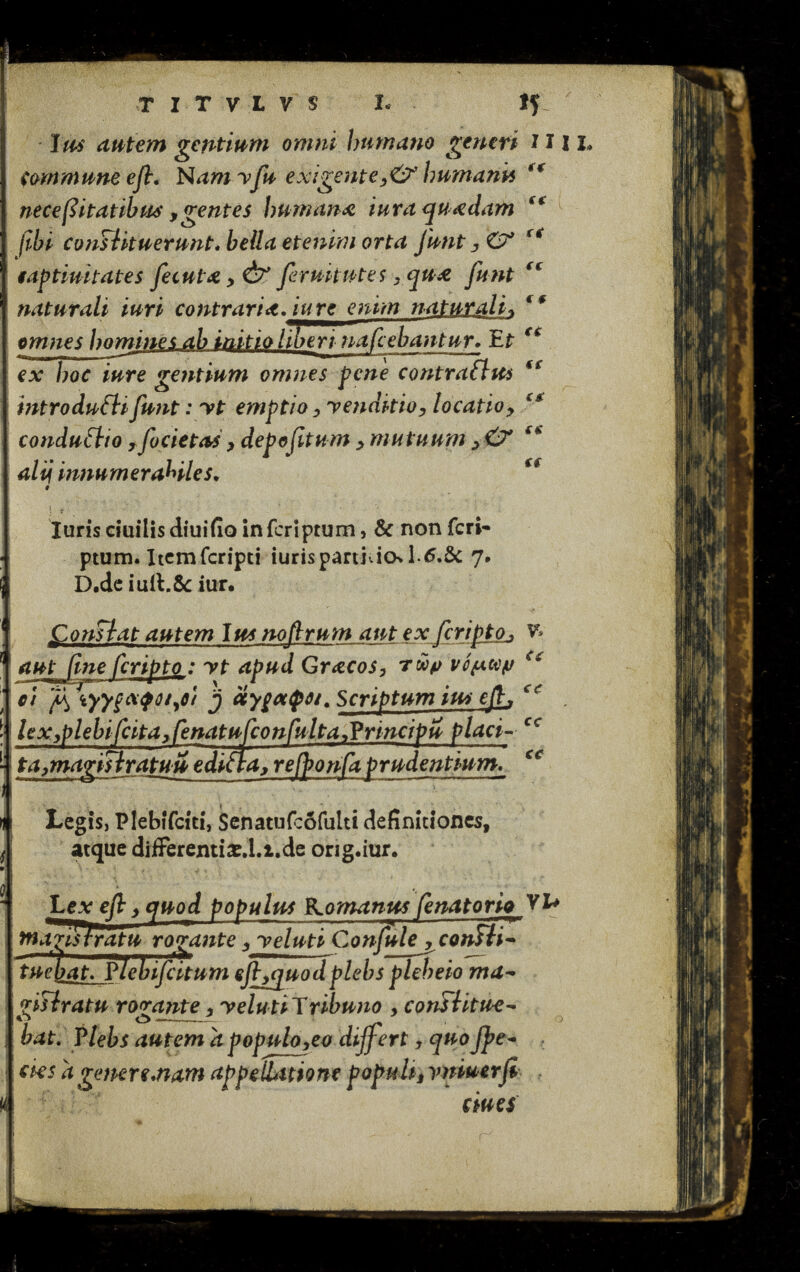 TITVLVS I. 15
Ius autem gentium omni humano generi IIII.
commune eſt. Nam vſu exigente, & humanis “
neceßitatibus, gentes humanæ iura quædam “
ſibi conſtituerunt. bella etenim orta ſunt, & “
captiuitates ſecutæ, & ſeruitutes, quæ ſunt “
naturali iuri contrariæ. iure enim naturali, “
omnes homines ab initio liberi naſcebantur. Et “
ex hoc iure gentium omnes penè contractus “
introducti ſunt: vt emptio, venditio, locatio, “
conductio, ſocietas, depoſitum, mutuum, & “
alij innumerabiles. “
Iuris ciuilis diuiſio in ſcriptum, & non ſcri-
ptum. Item ſcripti iuris partitio. l.6.& 7.
D.de iuſt.& iur.
Conſtat autem Ius noſtrum aut ex ſcripto, V.
aut ſine ſcripto: vt apud Græcos, τῶν νόμων “
οἱ μὲν ἔγγραφοι, οἱ δὲ ἄγραφοι. Scriptum ius eſt, “
lex, plebiſcita, ſenatuſconſulta, Principũ placi- “
ta, magiſtratuũ edicta, reſponſa prudentium. “
Legis, Plebiſciti, Senatuſcõſulti definitiones,
atque differentiæ.l.2.de orig.iur.
Lex eſt, quod populus Romanus ſenatorio VI.
magiſtratu rogante, veluti Conſule, conſti-
tuebat. Plebiſcitum eſt, quod plebs plebeio ma-
giſtratu rogante, veluti Tribuno, conſtitue-
bat. Plebs autem à populo, eo differt, quo ſpe-
cies à genere. nam appellatione populi, vniuerſi
ciues